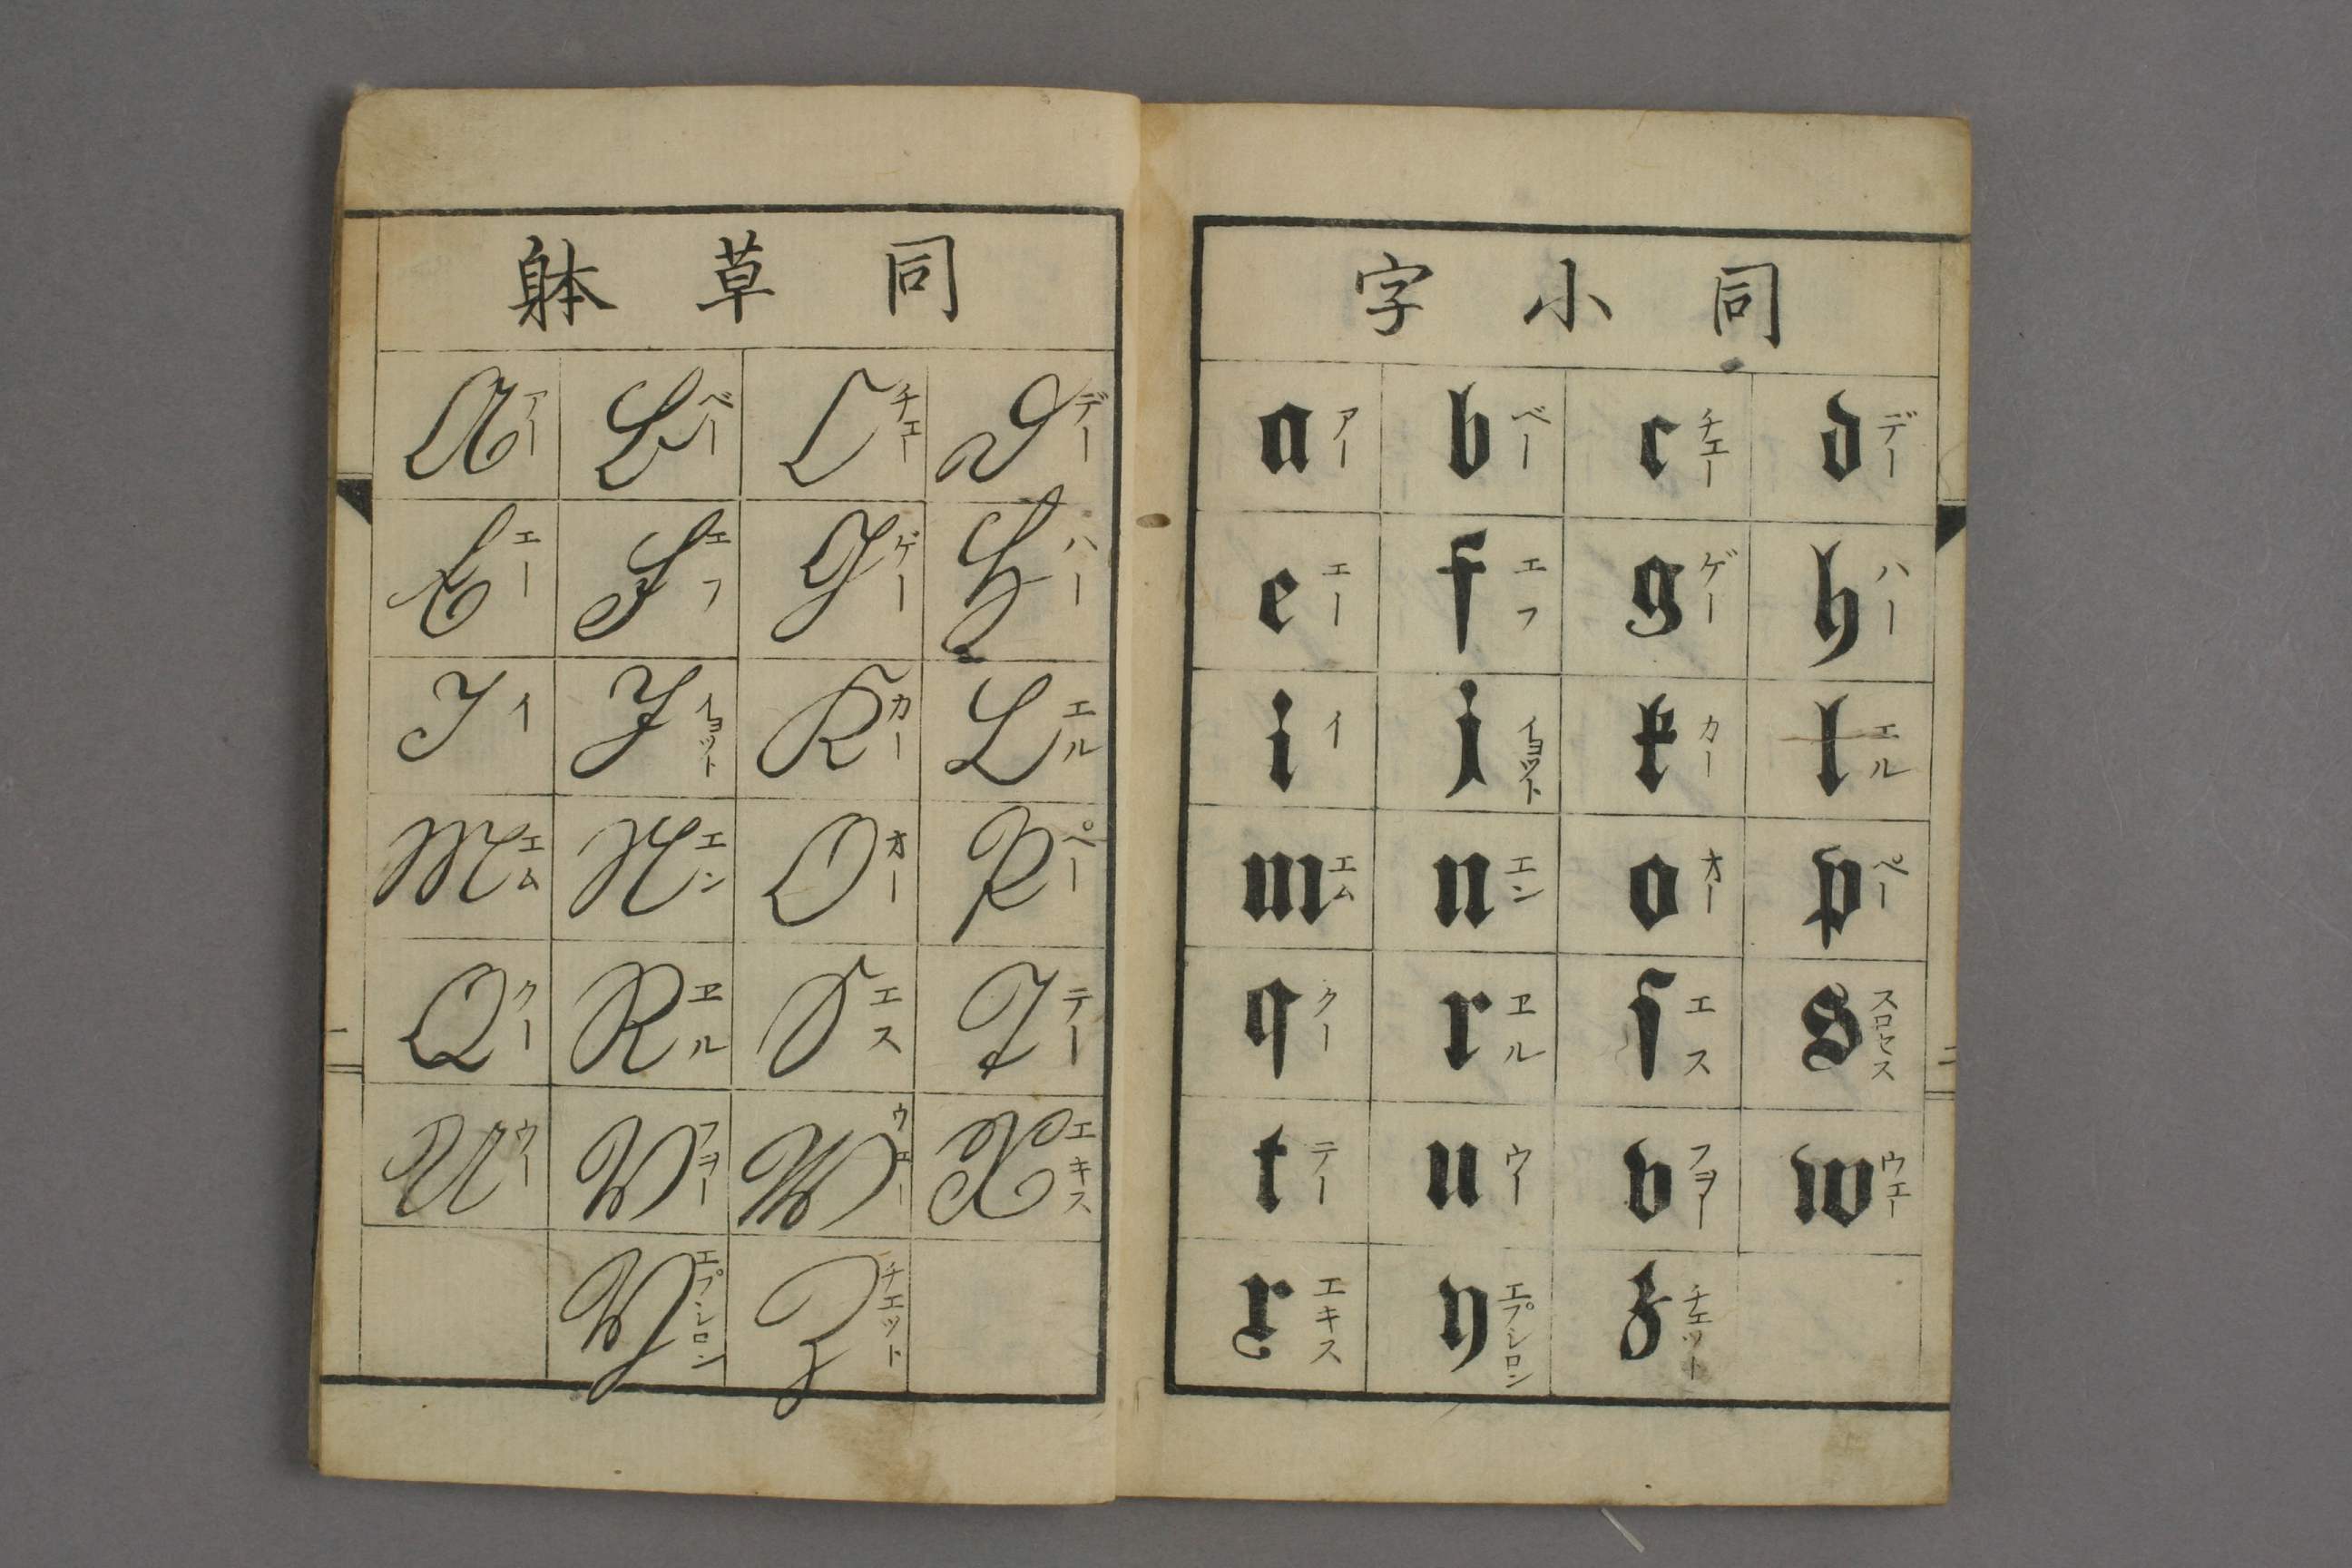 同小字
a アー b ベー c チエー d デー
e エー f エフ g ゲー h ハー
i イ j イヨツト k カー l エル
m エム n エン o オー p ペー
q クー r ヱル ſ エス s スロセス
t テー u ウー v フヲー w ウエー
x エキス y エプシロン z チエツト
二
同草躰
A アー B ベー C チエー D デー
E エー F エフ G ゲー H ハー
I イ J イヨツト K カー L エル
M エム N エン O オー P ペー
Q クー R ヱル S エス T テー
U ウー V フヲー W ウエー X エキス
Y エプシロン Z チエツト